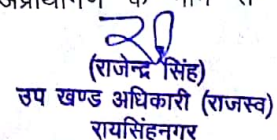 के
(राजेन्द्र सिंह)
उप खण्ड अधिकारी (राजस्व)
रायसिंहनगर